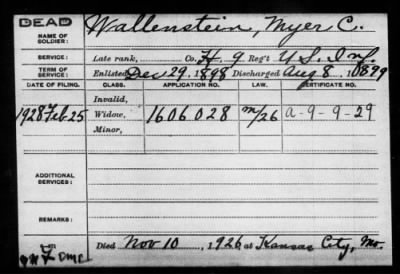 DEAD
NAME OF SOLDIER: Wallenstein, Myer C.
SERVICE: Late rank, Co. H. 9 Reg't U.S. Inf.
TERM OF SERVICE: Enlisted Dec 29, 1898 Discharged Aug 8, 1899
DATE OF FILING. CLASS. APPLICATION NO. LAW. CERTIFICATE NO.
Invalid,
1928 Feb 25 Widow, 1606028 m/26 a-9-9-29
Minor,
ADDITIONAL SERVICES:
REMARKS:
Died Nov 10, 1926 at Kansas City, Mo.